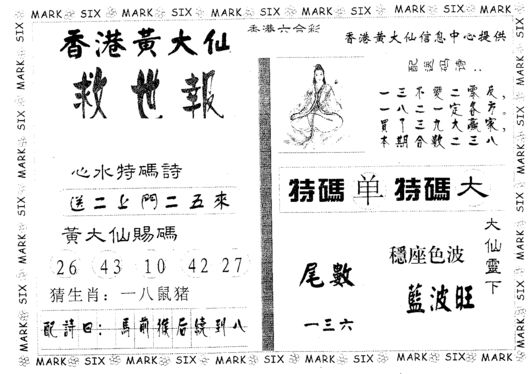 MARK SIX MARK SIX MARK SIX MARK SIX MARK SIX MARK SIX
香港六合彩
香港黃大仙
救世報
心水特碼詩
送二上門二五來
黃大仙賜碼
26 43 10 42 27
猜生肖：一八鼠猪
配詩曰：馬前猴后续到八
香港黃大仙信息中心提供
一三不愛二零反，
一八二一定各方。
買了三九大藏家，
本期合數二三八
特碼单 特碼大
尾數
一三六
穩座色波
藍波旺
大仙靈下
MARK SIX MARK SIX MARK SIX MARK SIX MARK SIX MARK SIX